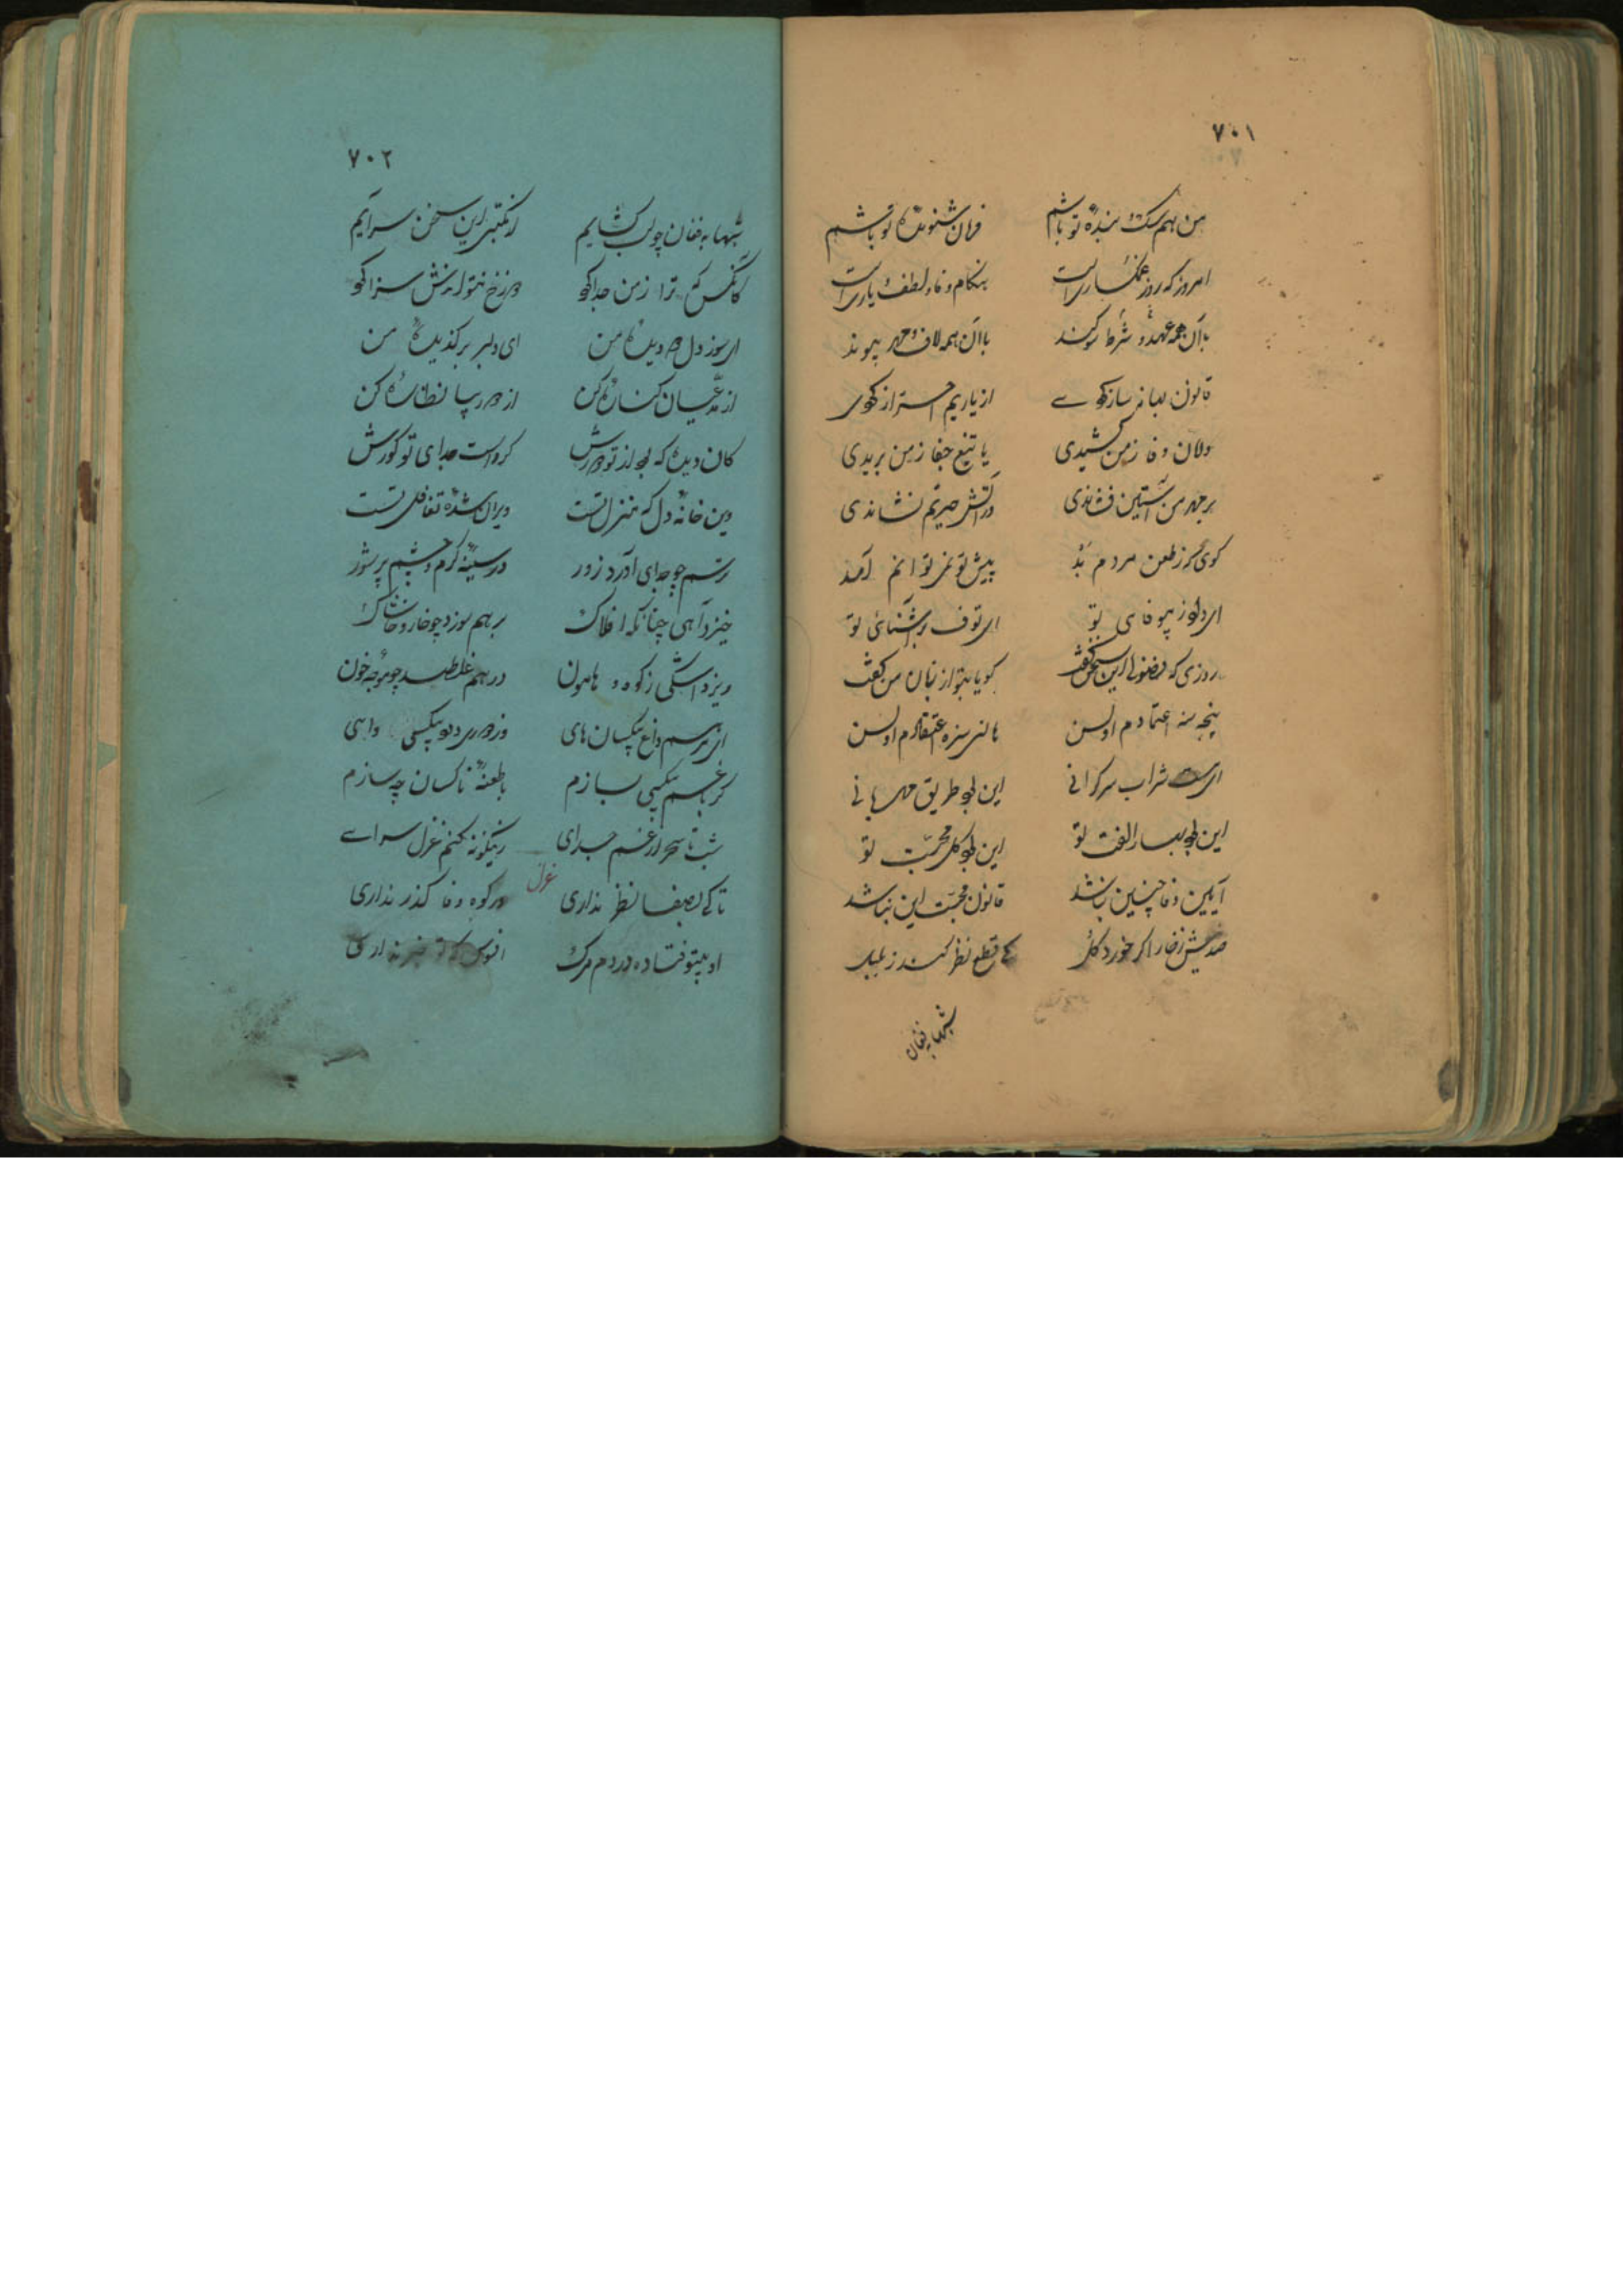 ۷۰۱
من هم سگ بنده تو باشم فرمان شنونده تو باشم
امروز که روز غمگساریست هنگام وفا و لطف و یاریست
با آن همه عهد و شرط و سوگند با آن همه لاف مهر و پیوند
قانون بهانه ساز کردی از یاریم احتراز کردی
دامان وفا ز من کشیدی یا تیغ جفا ز من بریدی
بر چهر من آستین فشاندی در آتش حیرتم نشاندی
گوئی که ز طعن مردم بد پیش تو نمی توانم آمد
ای داد ز بیوفایی تو ای تف بر آشنائی تو
روزی که فضولی این سخن گفت گویا بتو از زبان من گفت
نیجه سنه اعتمادم اولسن
ای مست شراب سرگرانی این بود طریق مهربانی
این بود بهار الفت تو این بود گل محبت تو
آیین وفا چنین نباشد قانون محبت این نباشد
صد نیش ز خار اگر خورد گل کی قطع نظر کند ز بلبل
شبها بفغان
۷۰۲
شبها به فغان چو لب گشایم زینگونه این سخن سرایم
کانکس که ترا ز من جدا کرد
ای سوز دل و دیده من ای دلبر برگزیده من
از مدعیان کناره کن از در بیا نظاره کن
کان دیده که بود از تو کردست جدای تو کورش
وین خانه دل که منزل تست ویران شده تغافل تست
ترسم چو جدای آورد زور در سینه گرم و چشم پر شور
خیزد آهی چنانکه افلاک بر هم سوزد چو خار و خاشاک
ریزد اشکی ز کوه و هامون در هم غلطد چو موجه خون
ای مرهم داغ بیکسان های وز درد دل و بیکسی وای
گر با غم بیکسی بسازم با طعنه ناکسان چه سازم
شب تا سحر از غم جدای زینگونه کنم غزل سرای
غزل
تا کی بصفا نظر نداری در کوه وفا گذر نداری
او بیتو فتاده در دم مرگ افسوس که تو خبر نداری